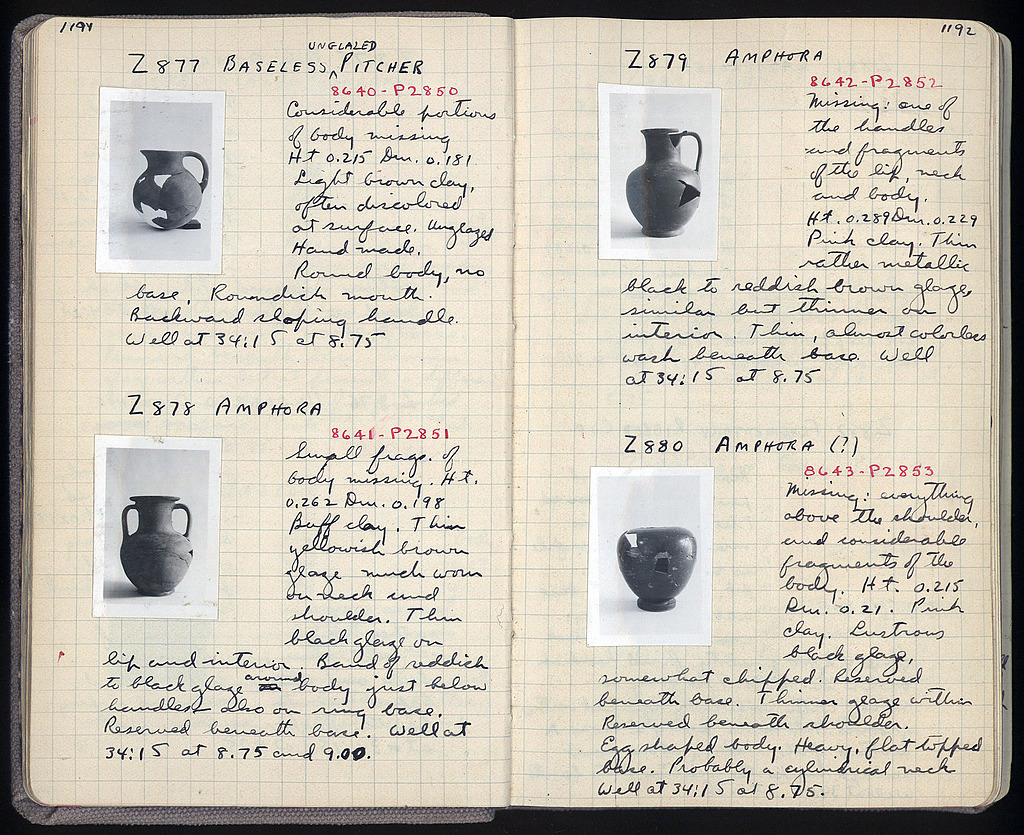 1191
UNGLAZED
Z877 BASELESS PITCHER
8640-P2850
Considerable portions
of body missing
Ht 0.215 Dm. 0.181
Light brown clay,
often discolored
at surface. Unglazed
Hand made.
Round body, no
base. Roundish mouth.
Backward sloping handle.
Well at 34:15 at 8.75
Z878 AMPHORA
8641-P2851
Small frags. of
body missing. Ht.
0.262 Dm. 0.198
Buff clay. Thin
yellowish brown
glaze much worn
on neck and
shoulder. Thin
black glaze on
lip and interior. Band of reddish
to black glaze around body just below
handles also on ring base.
Reserved beneath base. Well at
34:15 at 8.75 and 9.00.
1192
Z879 AMPHORA
8642-P2852
Missing: one of
the handles
and fragments
of the lip, neck
and body.
Ht. 0.289 Dm. 0.229
Pink clay. Thin
rather metallic
black to reddish brown glaze,
similar but thinner on
interior. Thin, almost colorless
wash beneath base. Well
at 34:15 at 8.75
Z880 AMPHORA (?)
8643-P2853
Missing: everything
above the shoulder,
and considerable
fragments of the
body. Ht. 0.215
Dm. 0.21. Pink
clay. Lustrous
black glaze,
somewhat chipped. Reserved
beneath base. Thinner glaze within
Reserved beneath shoulder.
Egg shaped body. Heavy, flat topped
base. Probably a cylindrical neck
Well at 34:15 at 8.75.